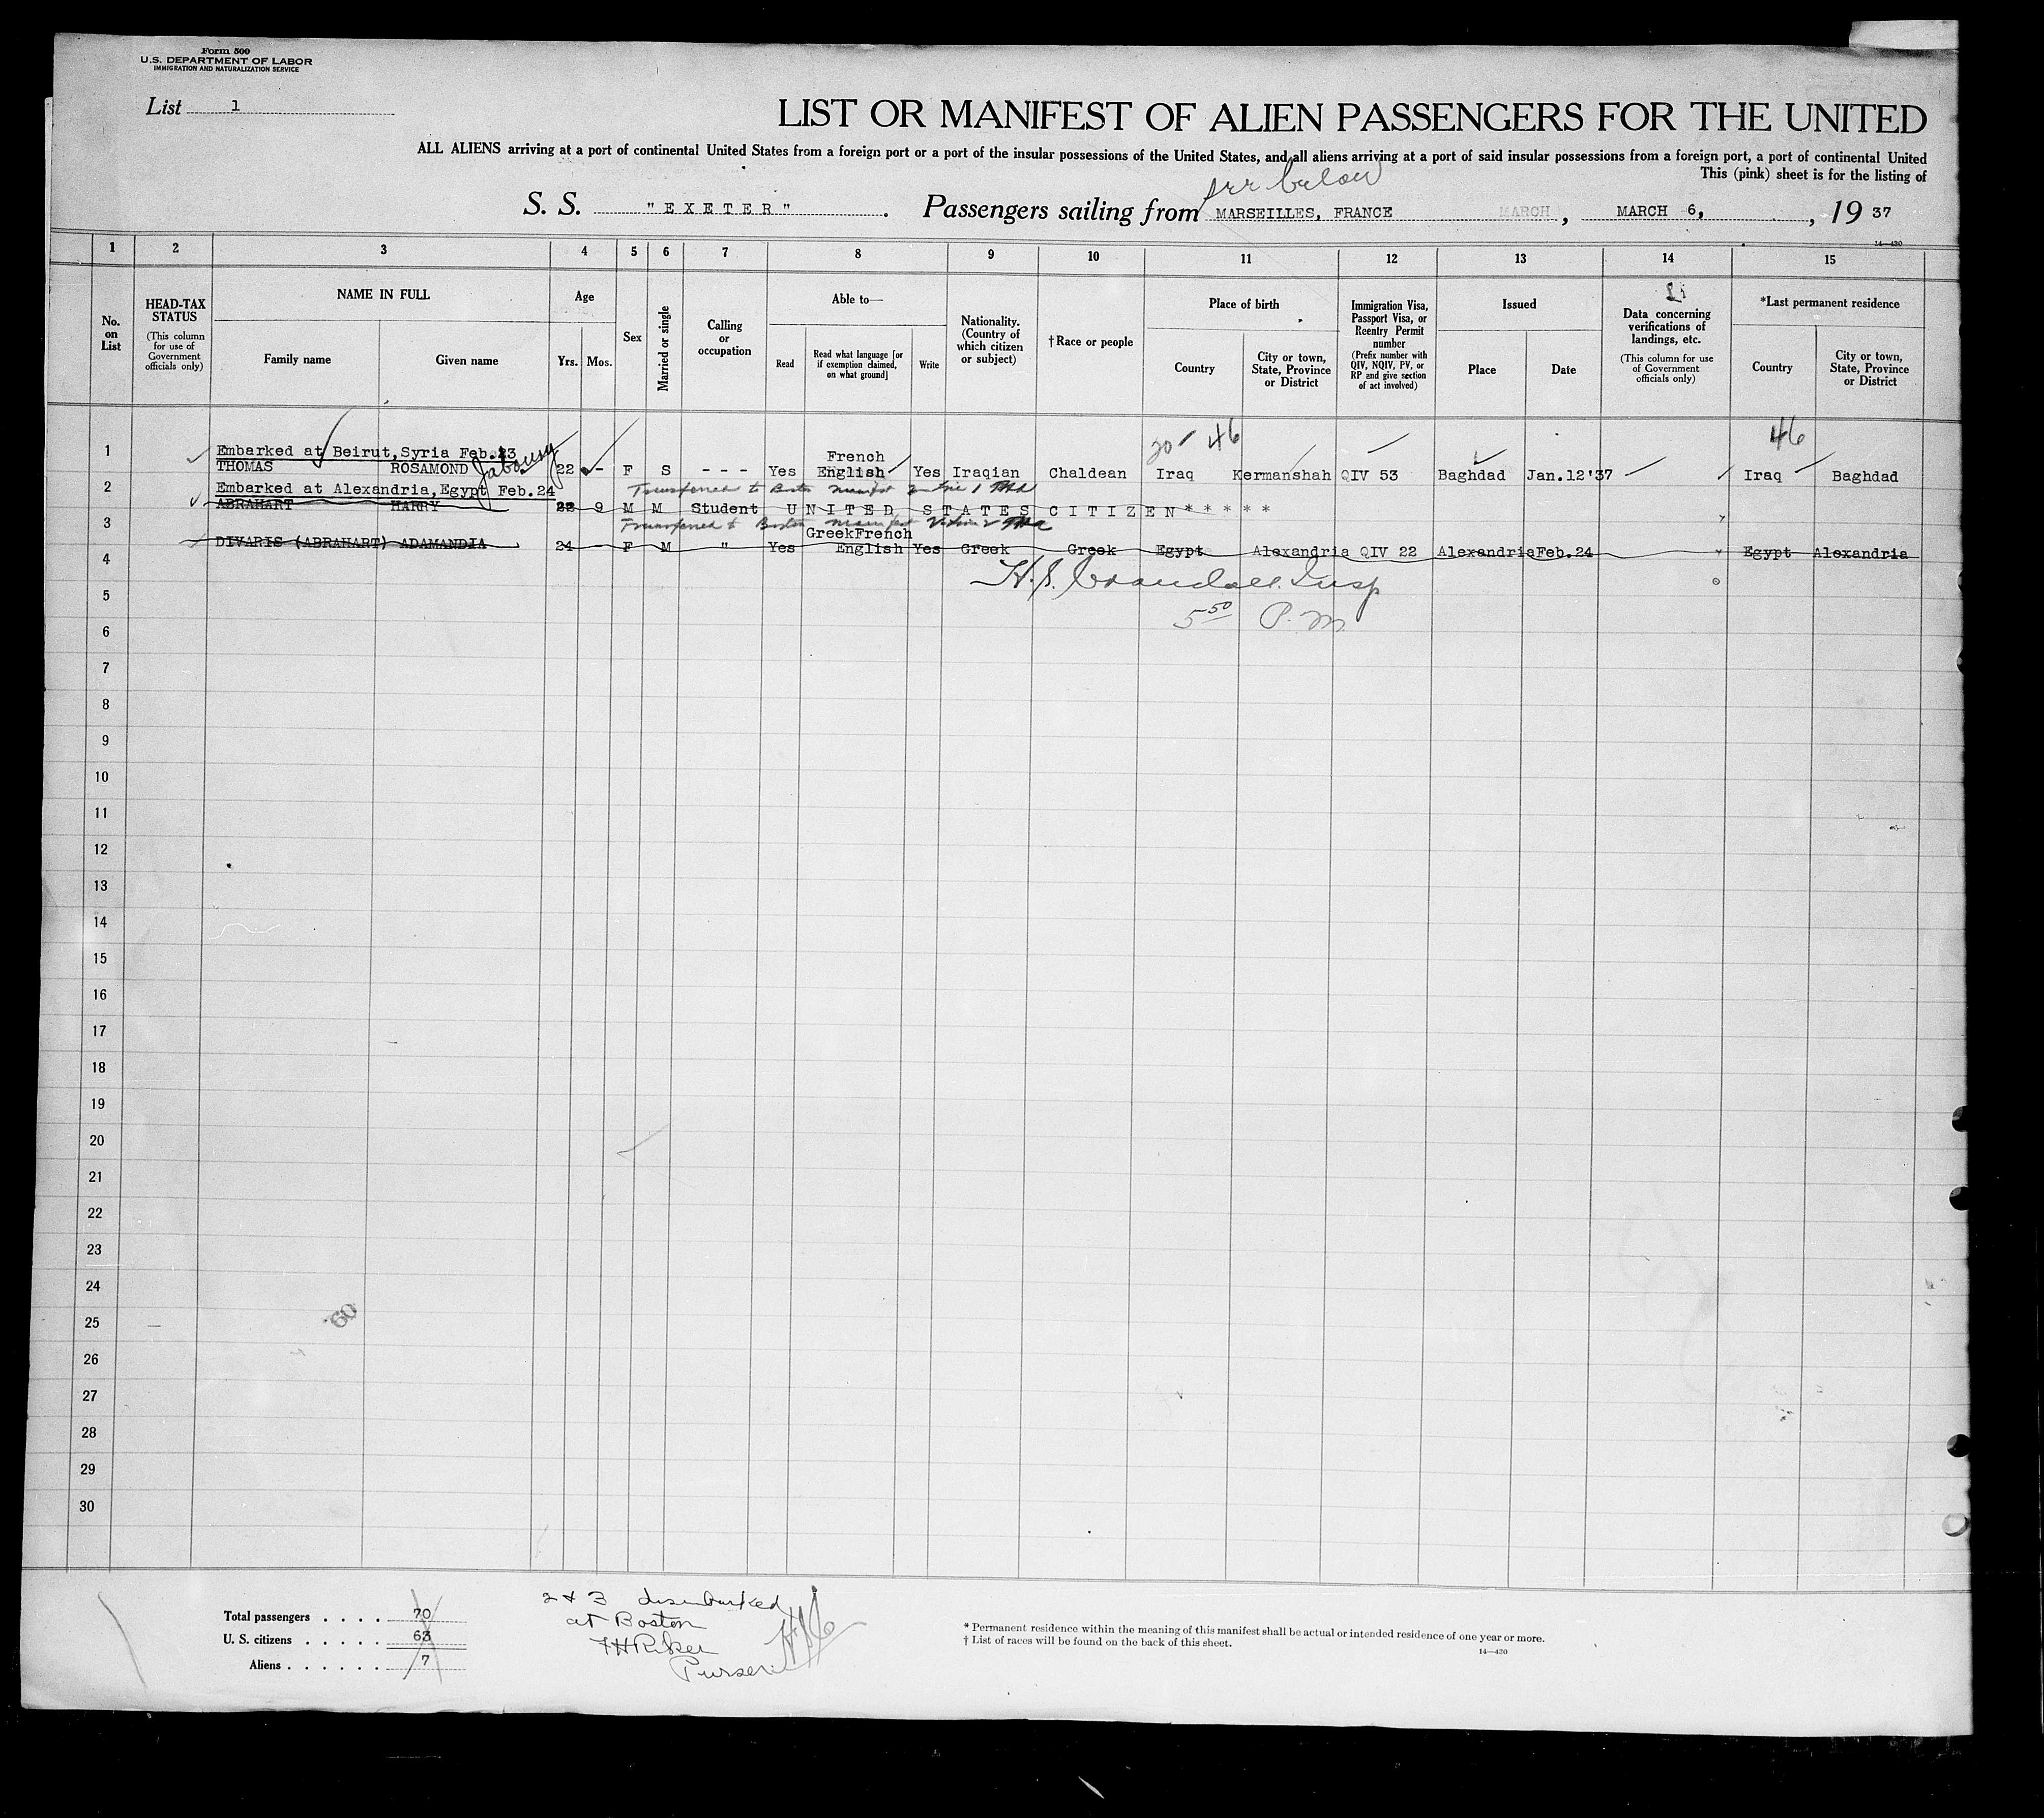 Form 500
U.S. DEPARTMENT OF LABOR
IMMIGRATION AND NATURALIZATION SERVICE
List 1
LIST OR MANIFEST OF ALIEN PASSENGERS FOR THE UNITED
ALL ALIENS arriving at a port of continental United States from a foreign port or a port of the insular possessions of the United States, and all aliens arriving at a port of said insular possessions from a foreign port, a port of continental United
This (pink) sheet is for the listing of
see below
S. S. "EXETER". Passengers sailing from MARSEILLES, FRANCE MARCH, MARCH 6, , 19 37
14—430
1 2 3 4 5 6 7 8 9 10 11 12 13 14 15
No. on List
HEAD-TAX STATUS
(This column for use of Government officials only)
NAME IN FULL
Family name
Given name
Age
Yrs.
Mos.
Sex
Married or single
Calling or occupation
Able to—
Read
Read what language [or if exemption claimed, on what ground]
Write
Nationality. (Country of which citizen or subject)
†Race or people
Place of birth
Country
City or town, State, Province or District
Immigration Visa, Passport Visa, or Reentry Permit number
(Prefix number with QIV, NQIV, PV, or RP and give section of act involved)
Issued
Place
Date
Data concerning verifications of landings, etc.
(This column for use of Government officials only)
*Last permanent residence
Country
City or town, State, Province or District
46 46
1 Embarked at Beirut,Syria Feb.23
French
THOMAS ROSAMOND Jaboury 22 - F S - - - Yes English Yes Iraqian Chaldean Iraq Kermanshah QIV 53 Baghdad Jan.12'37 Iraq Baghdad
2 Embarked at Alexandria,Egypt Feb.24
Transferred to Boston manifest line 1
ABRAHART HARRY 28 9 M M Student UNITED STATES CITIZEN*****
3 Transferred to Boston manifest
GreekFrench
DIVARIS (ABRAHART) ADAMANDIA 24 - F M " Yes English Yes Greek Greek Egypt Alexandria QIV 22 Alexandria Feb.24 Egypt Alexandria
4
H. S. Crandall. Insp
5
5 50 P. M.
6
7
8
9
10
11
12
13
14
15
16
17
18
19
20
21
22
23
24
25
60
26
27
28
29
30
Total passengers . . . . 70
U. S. citizens . . . . . 63
Aliens . . . . . . 7
2 & 3 disembarked
at Boston
FHRiker
Purser
* Permanent residence within the meaning of this manifest shall be actual or intended residence of one year or more.
† List of races will be found on the back of this sheet.
14—430